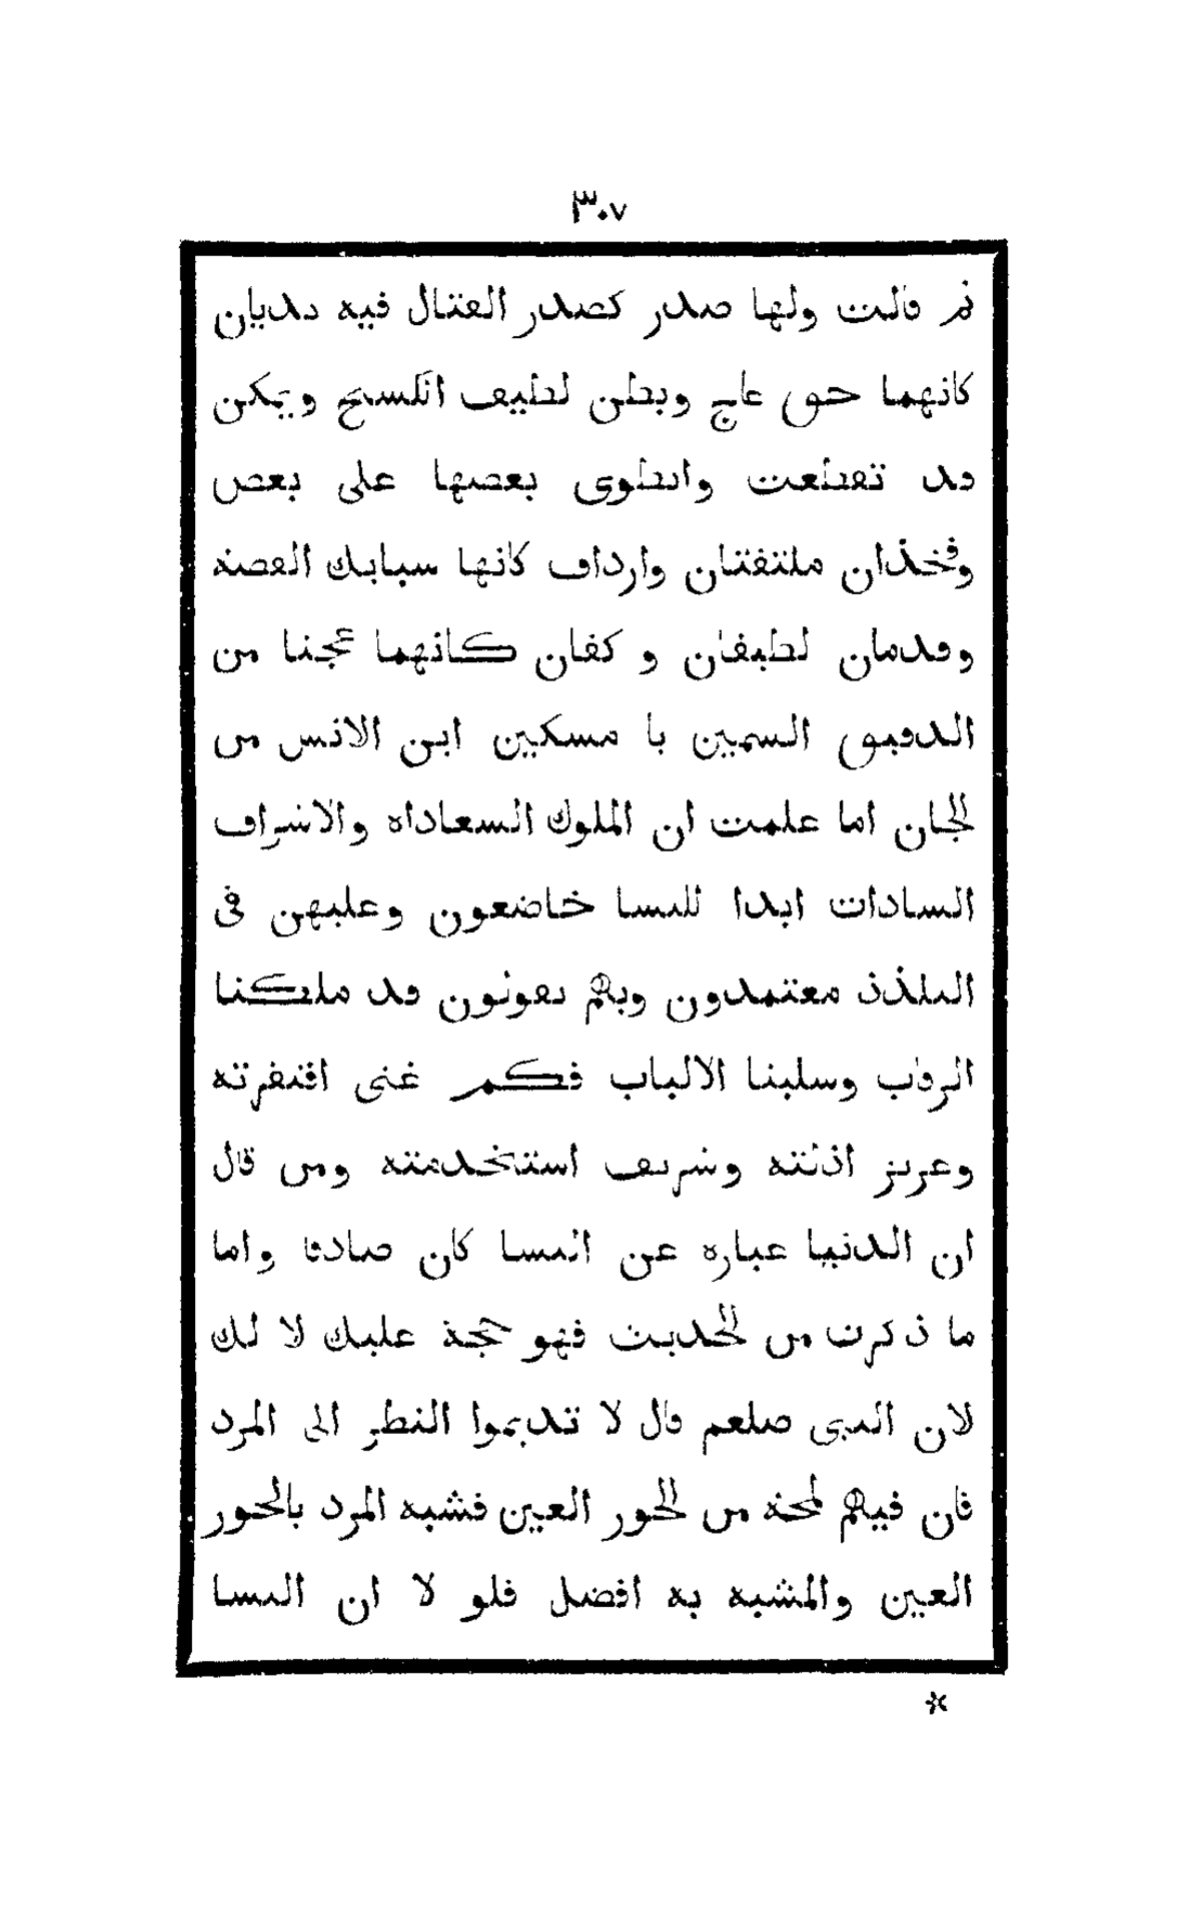 ٣٠٧
ثم قالت ولها صدر كصدر القتال فيه نديان
كانهما حق عاج وبطن لطيف الكسح ويمكن
قد تقطعت وانطوى بعضها على بعض
وفخذان ملتفتنان وارداف كانها سبابك الفضة
وقدمان لطيفان و كفان كانهما عجنا من
الدقيق السمين يا مسكين ابن الانس من
الجان اما علمت ان الملوك السعاداه والاشراف
السادات ابدا للنسا خاضعون وعليهن فى
التلذذ معتمدون وبهم يقولون قد ملكنا
الرقاب وسلبنا الالباب فكم غنى افتقرته
وعزيز اذلته وشريف استخدمته ومن قال
ان الدنيا عباره عن النسا كان صادقا واما
ما ذكرت من الحديث فهو حجة عليك لا لك
لان النبى صلعم قال لا تديموا النظر الى المرد
فان فيهم لمحة من الحور العين فشبه المرد بالحور
العين والمشبه به افضل فلو لا ان النسا
*